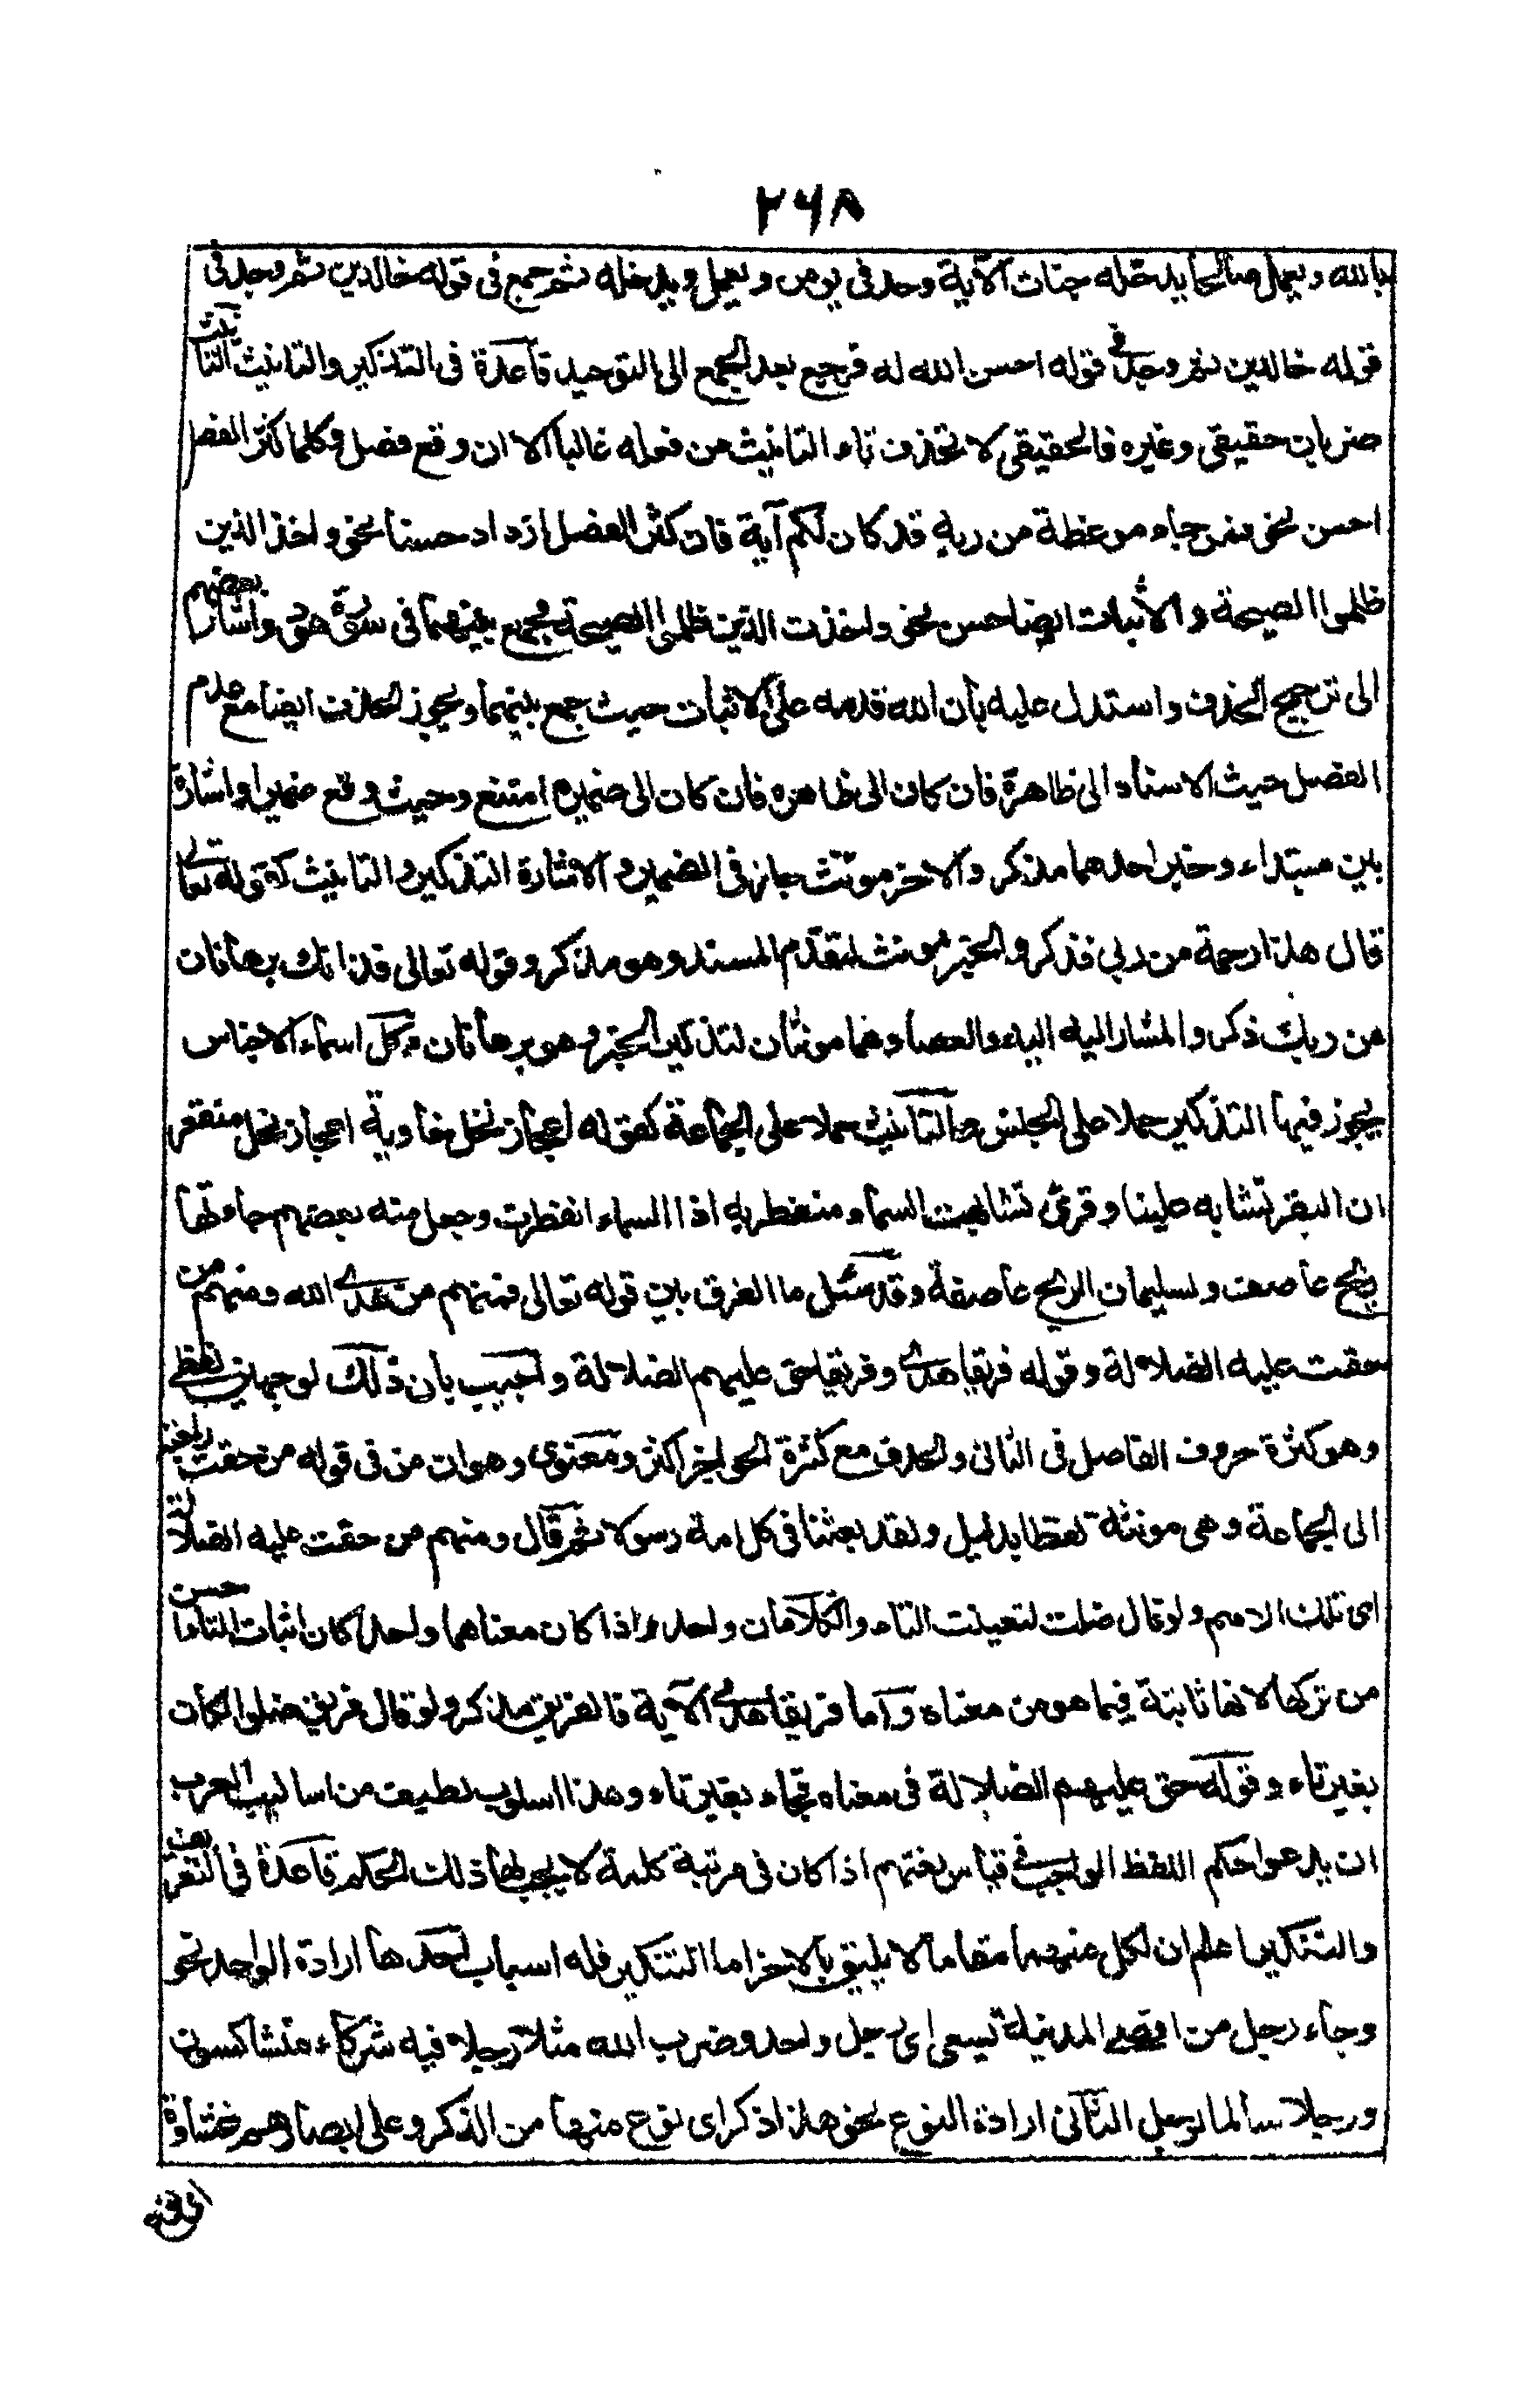 ٢٦٨
بالله ويعمل صالحا يدخله جنات الآية وحد في يومن ويعمل ويدخله ثم جمع في قوله خالدين ثم وحد في
قوله خالدين ثم وحد في قوله احسن الله له فرجع بعد الجمع الى التوحيد قاعدة في التذكير والتانيث التانيث
ضربان حقيقي وغيره فالحقيقي لا تحذف تاء التانيث من فعله غالبا الا ان وقع فصل وكلما كثر الفصل
احسن نحو فمن جاءه موعظة من ربه قد كان لكم آية فان كثر الفصل ازداد حسنا نحو واخذ الذين
ظلموا الصيحة والاثبات ايضا حسن نحو واخذت الذين ظلموا الصيحة فجمع بينهما في سورة هود واشار بعضهم
الى ترجيح الحذف واستدل عليه بأن الله قدمه على الاثبات حيث جمع بينهما ويجوز الحذف ايضا مع عدم
الفصل حيث الاسناد الى ظاهره فان كان الى ضميره امتنع وحيث وقع ضمير او اشارة
بين مبتداء وخبر احدهما مذكر والاخر مونث جاز في الضمير والاشارة التذكير والتانيث كقوله تعالى
قال هذا رحمة من ربي فذكر والخبر مونث لتقدم المسند وهو مذكر وقوله تعالى فذانك برهانان
من ربك ذكر والمشار اليه اليد والعصا وهما مونثان لتذكير الخبر وهو برهانان وكل اسماء الاجناس
يجوز فيها التذكير حملا على الجنس والتانيث حملا على الجماعة كقوله اعجاز نخل خاوية اعجاز نخل منقعر
ان البقر تشابه علينا وقرئ تشابهت السماء منفطر به اذا السماء انفطرت وجعل منه بعضهم جاءتها
ريح عاصف ولسليمان الريح عاصفة وقد سئل ما الفرق بين قوله تعالى فمنهم من هدى الله ومنهم من
حقت عليه الضلالة وقوله فريقا هدى وفريقا حق عليهم الضلالة واجيب بأن ذلك لوجهين لفظي
وهو كثرة حروف الفاصل في الثاني والحذف مع كثرة الحواجز اكثر ومعنوي وهو ان من في قوله من حقت راجعة
الى الجماعة وهي مونثة لفظا بدليل ولقد بعثنا في كل امة رسولا ثم قال ومنهم من حقت عليه الضلالة
اى تلك الامم ولو قال ضلت لتعينت التاء والكلامان واحد واذا كان معناهما واحدا كان اثبات التاء احسن
من تركها لانها ثابتة فيما هو من معناه واما فريقا هدى الآية فالفريق مذكر ولو قال فريق ضلوا لكان
بغير تاء وقوله حق عليهم الضلالة في معناه فجاء بغير تاء وهذا اسلوب لطيف من اساليب العرب
ان يدعوا حكم اللفظ الواجب في قياس لغتهم اذا كان في مرتبة كلمة لا يجب لها ذلك الحكم قاعدة في التعريف
والتنكير اعلم ان لكل منهما مقاما لا يليق بالاخر اما التنكير فله اسباب احدها ارادة الواحد نحو
وجاء رجل من اقصى المدينة يسعى اى رجل واحد وضرب الله مثلا رجلا فيه شركاء متشاكسون
ورجلا سالما لرجل الثاني ارادة النوع نحو هذا ذكر اى نوع منها من الذكر وعلى ابصارهم غشاوة